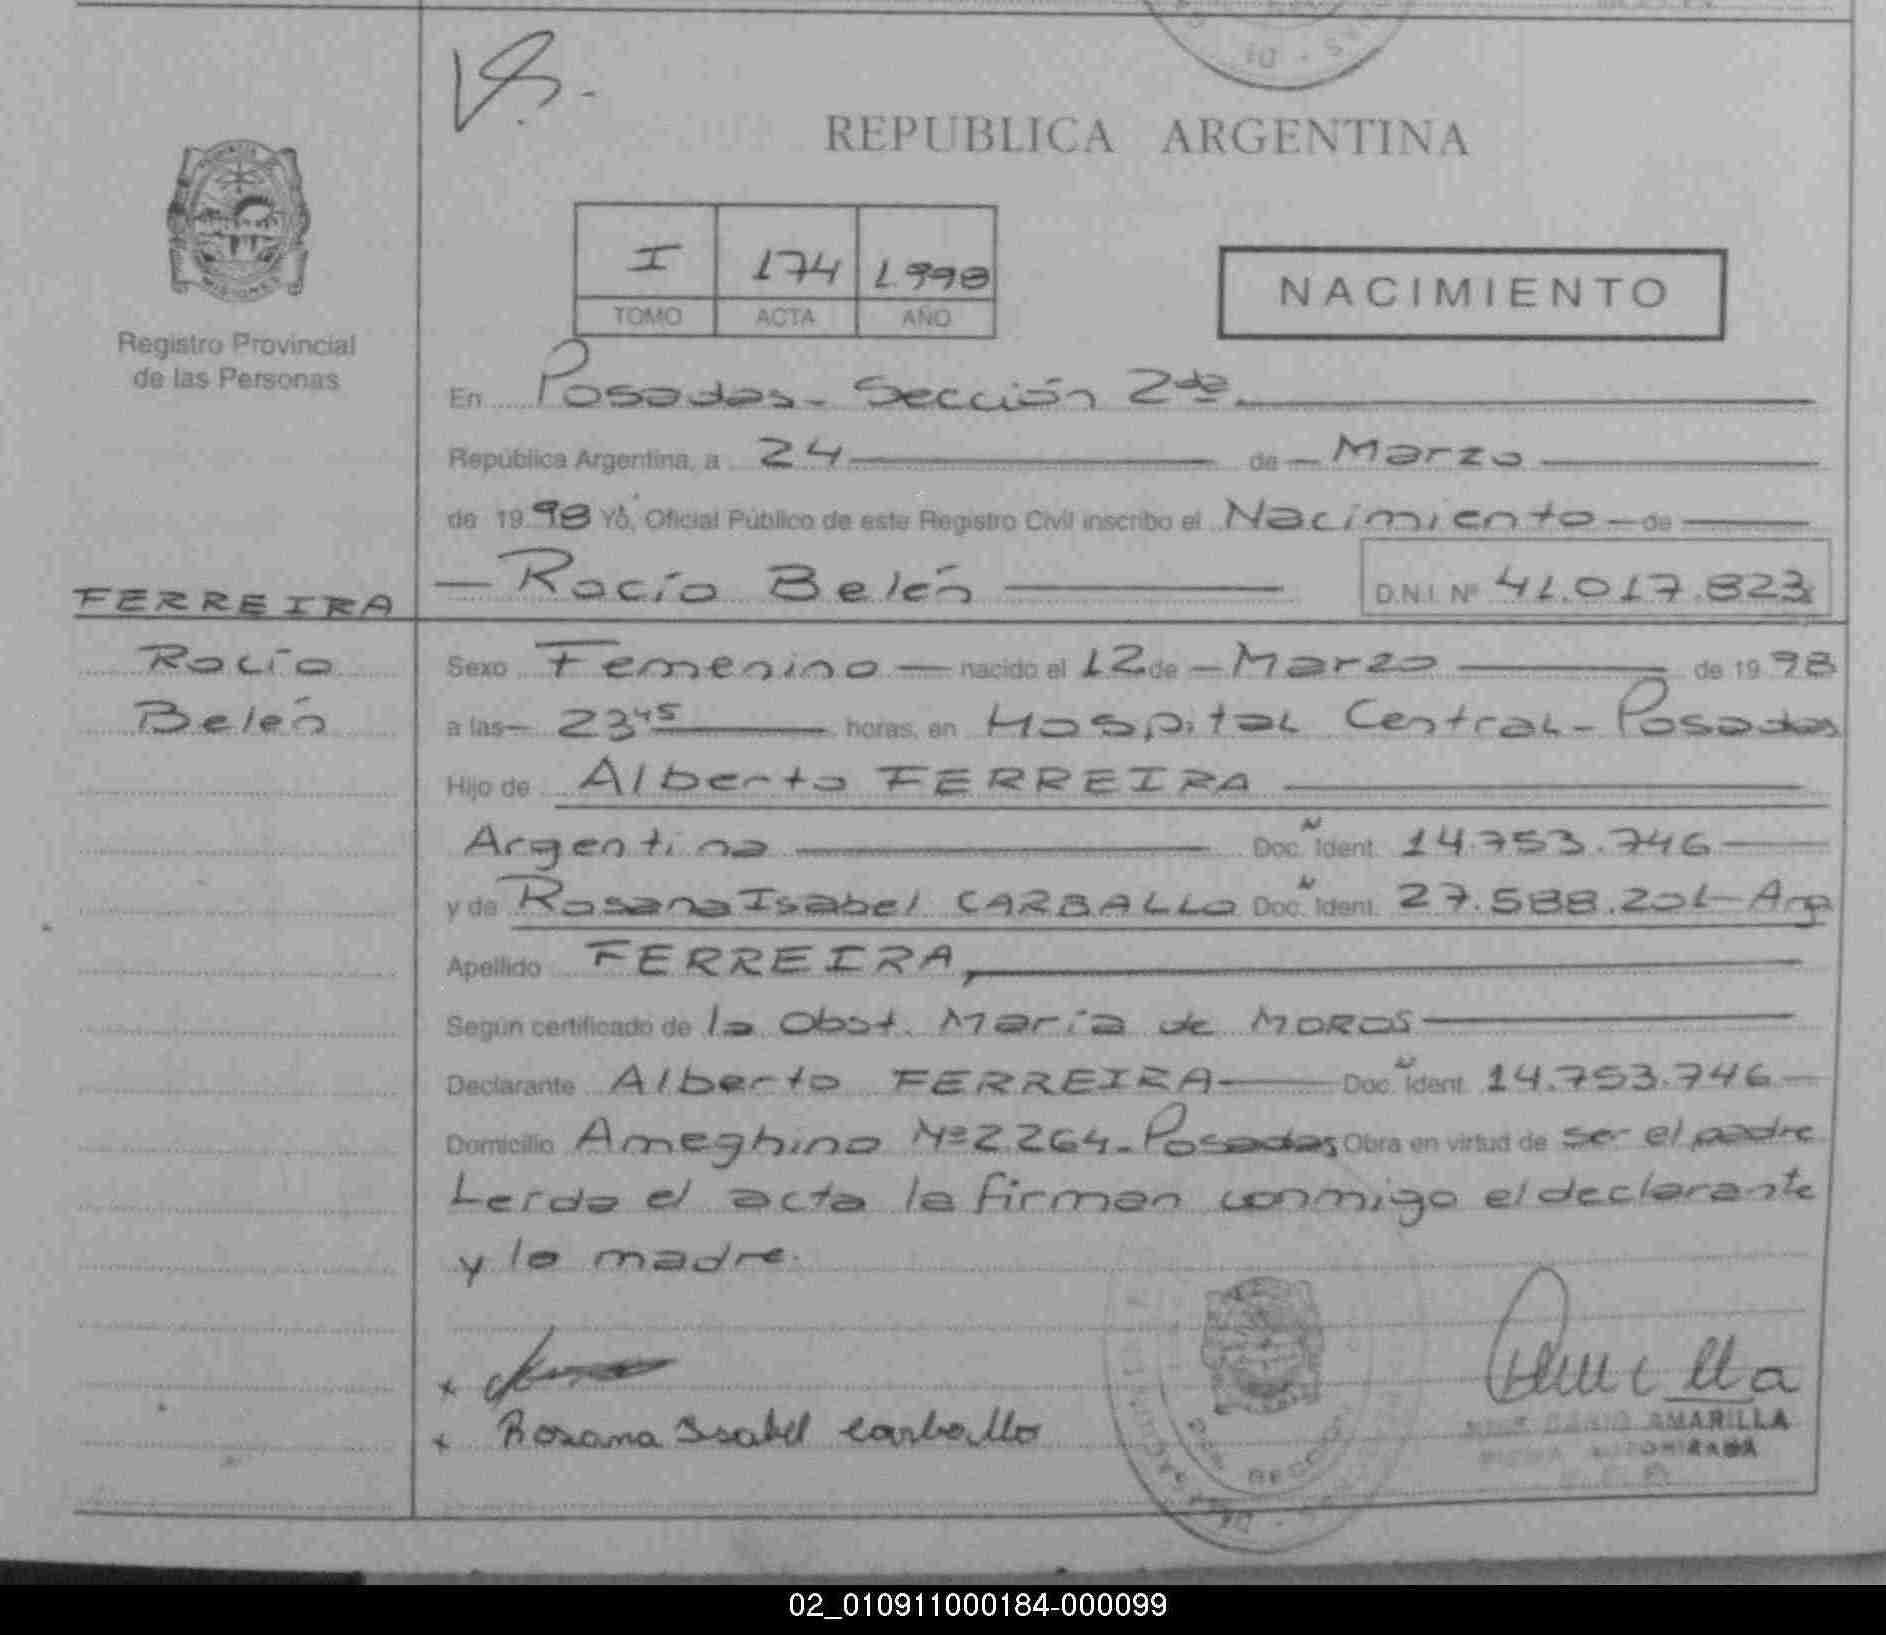 REPUBLICA ARGENTINA
I 174 1998
TOMO ACTA AÑO
NACIMIENTO
MISIONES
Registro Provincial
de las Personas
En Posadas - Sección 2da.
República Argentina, a 24 de Marzo
de 1998 Yo, Oficial Público de este Registro Civil inscribo el Nacimiento de
Rocío Belén D.N.I. Nº 41.017.823
FERREIRA
Rocío
Belén
Sexo Femenino nacido el 12 de Marzo de 1998
a las 23 45 horas, en Hospital Central - Posadas
Hijo de Alberto FERREIRA
Argentina Doc. Ident. 14.753.746
y de Rosana Isabel CARBALLO Doc. Ident. 27.588.201 - Arg
Apellido FERREIRA,
Según certificado de la Obst. María de MOROS
Declarante Alberto FERREIRA Doc. Ident. 14.753.746
Domicilio Ameghino Nº 2264 - Posadas Obra en virtud de ser el padre
Leída el acta la firman conmigo el declarante
y la madre.
x
x Rosana Isabel Carballo
AMARILLA
02_010911000184-000099